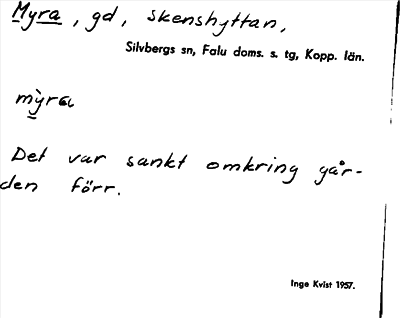 Myra, gd, Skenshyttan,
Silvbergs sn, Falu doms. s. tg, Kopp. län.
mỳra
Det var sankt omkring går-
den förr.
Inge Kvist 1957.